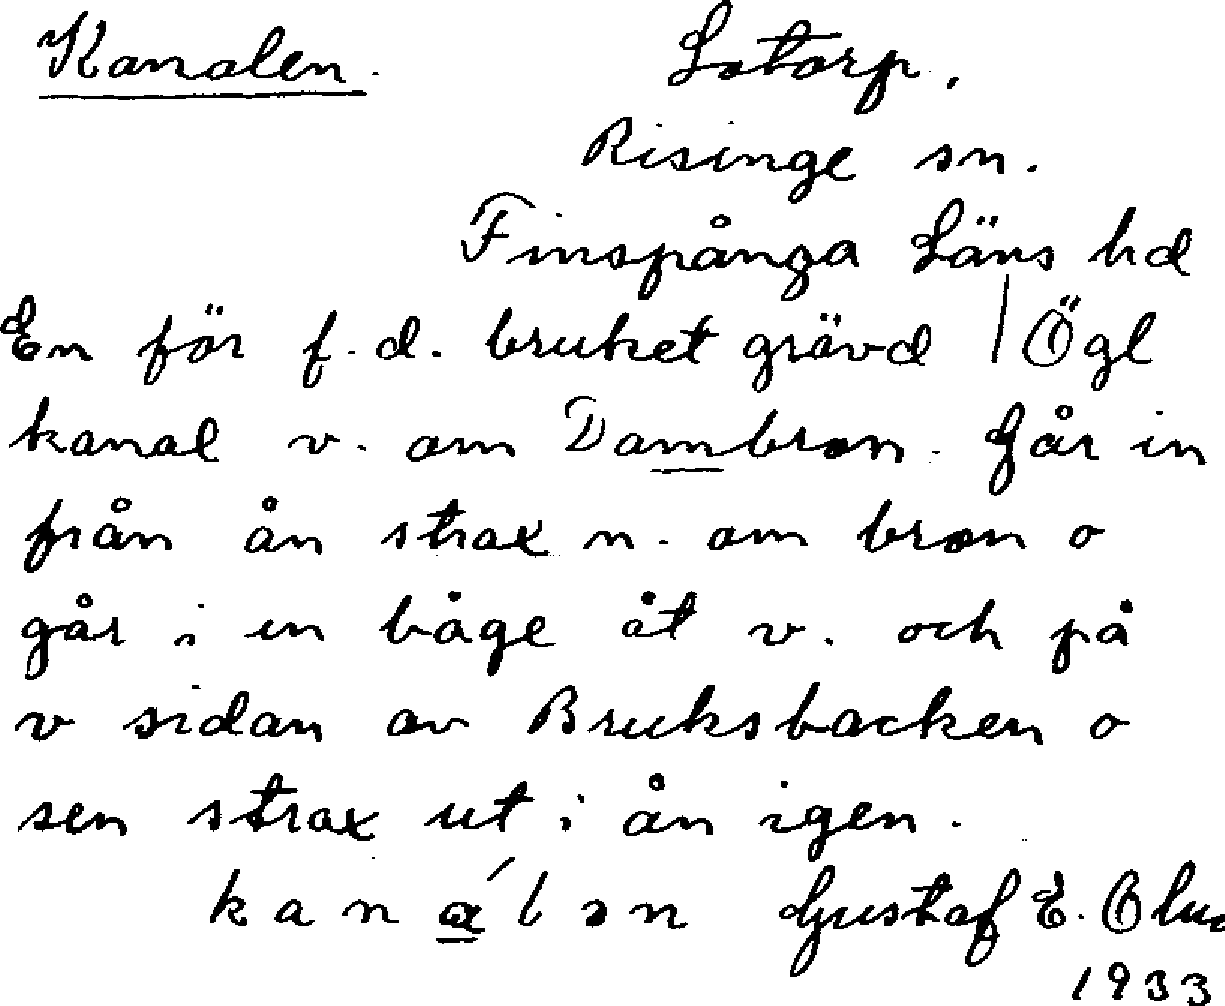 Kanalen. Lotorp.
Risinge sn.
Finspånga Läns hd
En för f.d. bruket grävd / Ögl
kanal v. om Dambron. Går in
från ån strax n. om bron o
går i en båge åt v. och på
v sidan av Bruksbacken o
sen strax ut i ån igen.
kaná̳lən Gustaf E.
1933